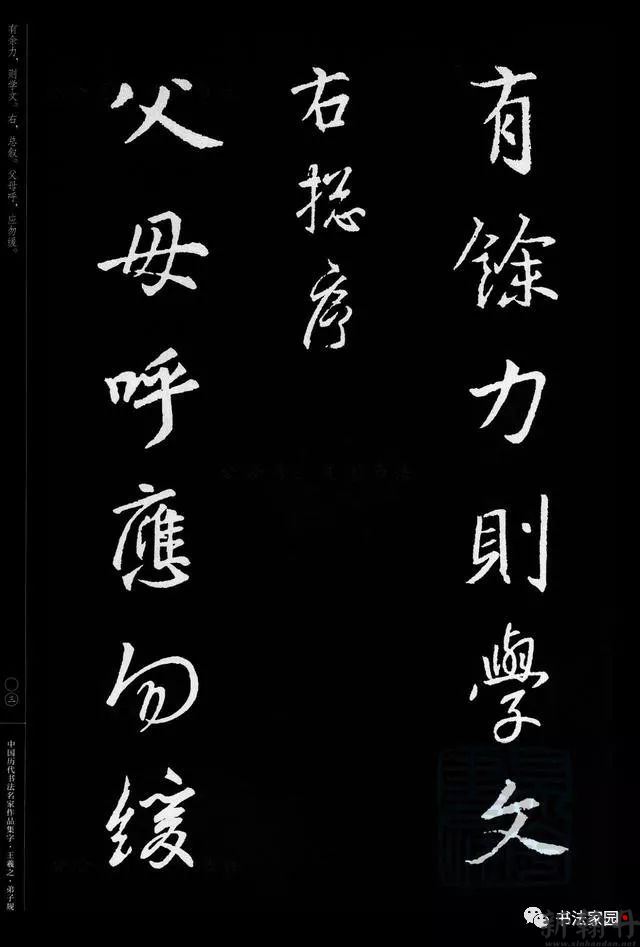 有餘力則學文
右揔序
父母呼應勿緩
有余力，则学文。右，总叙。父母呼，应勿缓。
〇三
中国历代书法名家作品集字·王羲之·弟子规
书法家园
新翰丹
www.xinhandan.net